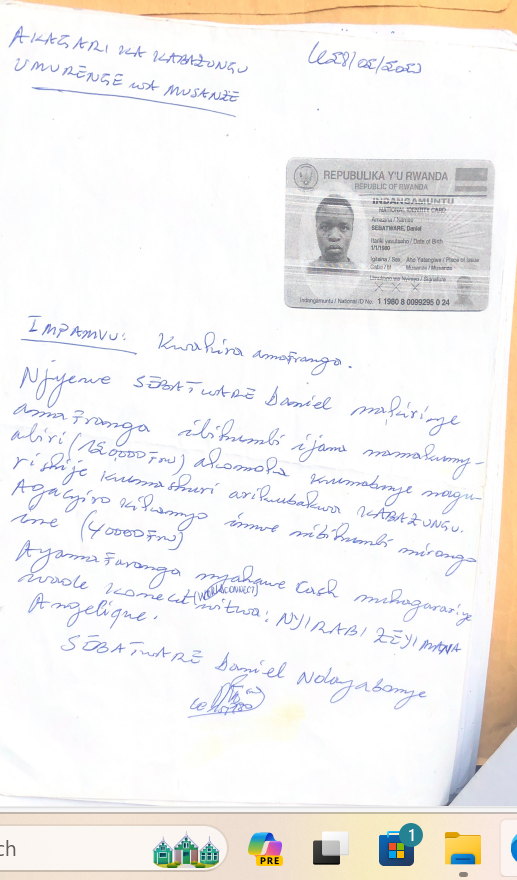 AKAGARI KA KABAZUNGU
UMURENGE WA MUSANZE
REPUBULIKA Y'U RWANDA
REPUBLIC OF RWANDA
INDANGAMUNTU
NATIONAL IDENTITY CARD
Amazina / Names
SEBATWARE, Daniel
Itariki yavutseho / Date of Birth
1/1/1980
Igitsina / Sex Aho Yatangiwe / Place of Issue
Gabo / M Musanze / Musanze
Umukono wa Nyirayo / Signature
Indangamuntu / National ID No. 1 1980 8 0099295 0 24
IMPAMVU: Kwakira amafranga.
Njyewe SEBATWARE Daniel
amafranga ibihumbi ijana namakumy-
abiri (120000 FRW) akomoka kumabuye nagu-
rishije kumashuri arikubakwa KABAZUNGU.
Agaciro kikamyo imwe nibihumbi mirongo
ine (40000 FRW)
Ayamafaranga nyahawe cash
(WORLD CONNECT)
nitwa: NYIRABIZEYIMANA
Angelique.
SEBATWARE Daniel Ndayabonye
ch
PRE
1